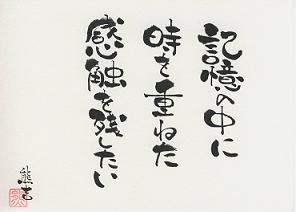 記憶の中に
時を重ねた
感触を残したい